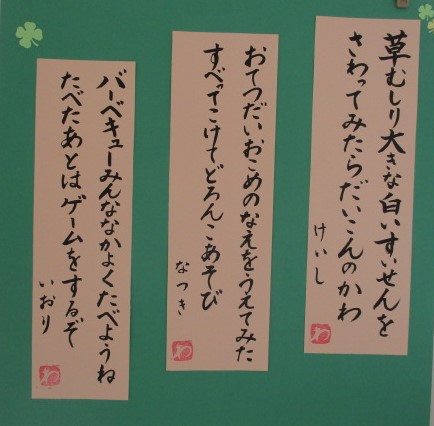 草むしり大きな白いすいせんを
さわってみたらだいこんのかわ
けいし
おてつだいおこめのなえをうえてみた
すべってこけてどろんこあそび
なつき
バーベキューみんななかよくたべようね
たべたあとはゲームをするぞ
いおり